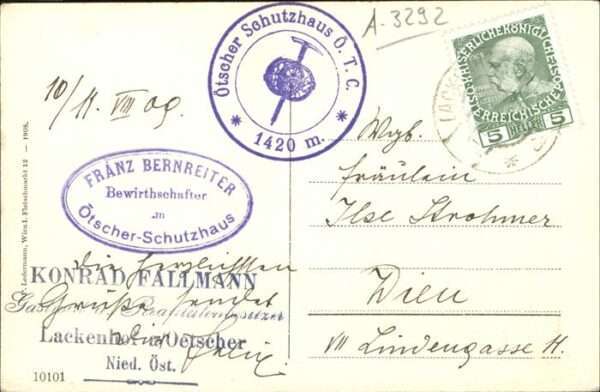 A-3292
Ötscher Schutzhaus Ö.T.C.
* 1420 m. *
KAISERLICHE KÖNIGLICHE
ÖSTERREICHISCHE
5 HELLER 5
10/11. VIII 09.
FRANZ BERNREITER
Bewirthschafter
Ötscher-Schutzhaus
KONRAD FALLMANN
Lackenhof a/Oetscher
Nied. Öst.
die herzlichsten
Grüße sendet
Ledermann, Wien I. Fleischmarkt 12 — 1908.
10101
Fräulein
Ilse Strohmer
Wien
VII Lindengasse 11.